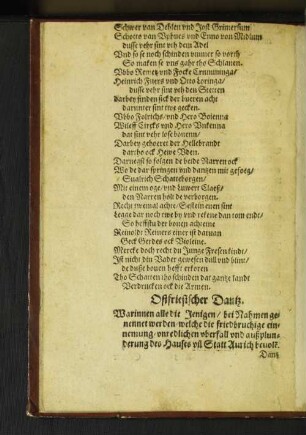 Schwer van Dehlen und Jost Grimersum
Schotto van Uphues und Enno van Midlum
dusse vehr sint uth dem Adel
Und so se noch schinden ummer so vorth
So maken se uns gahr tho Schlaven.
Ubbo Remetz und Focke Ernummga/
Heinrich Fuers und Otto Loringa/
dusse vehr sint uth den Stetten
Darbey finden sick der bueren acht
darunter sint twe gecken.
Ubbo Folrichs/ und Hero Boienna
Wileff Eircks und Hero Unkenna
dat sint vehr lose bouenn/
Darbey gehoeret der Hellebrandt
dartho ock Hewe Uden.
Darnegst so folgen de beide Narren ock
Wo de dar springen und dantzen mit gesotz/
Sialrich Schatteborgen/
Mit einem oge/ und Luwerr Claeß/
den Narren holt de verborgen.
Recht twemal achte/ Sestein einer sint
legge dar noch twe by und rekene dan rom endt/
So heffstu der bouen achteine
Reinoldt Reiners einer ist daruan
Gock Gerdes ock Violeine.
Mercke doch recht du Junge Fresenkindt/
Ist nicht din Vader gewesen dull und blint/
de dusse bouen hefft erkoren
Tho Schatten tho schinden dat gantze landt
Verdrucken ock die Armen.
Ostfriesischer Dantz.
Warinnen alle die Jenigen/ bei Nahmen ge-
nennet werden/ welche die friedbruchige ein-
nemung/ unredlichen uberfall und außplun-
derung des Hauses uñ Statt Aurich
Dantz